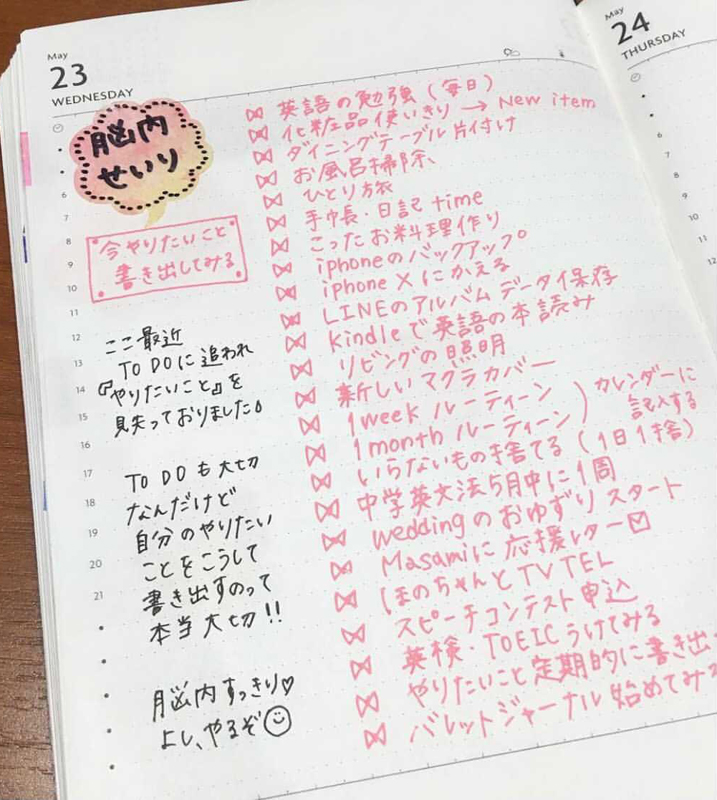 May
23
WEDNESDAY
脳内
せいり
今やりたいこと
書き出してみる
ここ最近
TO DOに追われ
『やりたいこと』を
見失っておりました。
TO DOも大切
なんだけど
自分のやりたい
ことをこうして
書き出すのって
本当大切!!
脳内すっきり♡
よし、やるぞ☺
英語の勉強(毎日)
化粧品使いきり→New item
ダイニングテーブル片付け
お風呂掃除、
ひとり旅
手帳・日記time
こったお料理作り
iphoneのバックアップ。
iphone Xにかえる
LINEのアルバムデータイ保存
Kindleで英語の本読み
リビングの照明
新しいマクラカバー
1weekルーティーン
1monthルーティーン
カレンダーに
記入する
いらないもの捨てる(1日1捨)
中学英文法5月中に1周
weddingのおゆずりスタート
Masamiに応援レター☑
ほのちゃんとTV TEL
スピーチコンテスト申込
英検・TOEICうけてみる
やりたいこと定期的に書き出
バレットジャーナル始めてみる
6
7
8
9
10
11
12
13
14
15
16
17
18
19
20
21
May
24
THURSDAY
6
7
8
9
10
11
12